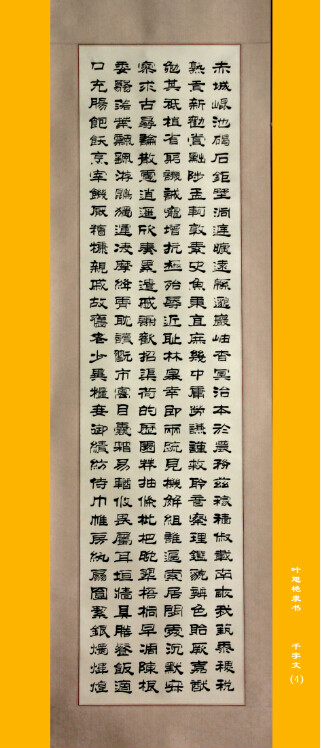 赤城崐池碣石鉅埜洞庭曠遠緜邈巖岫杳冥治本於農務茲稼穡俶載南畝我藝黍稷稅
熟貢新勸賞黜陟孟軻敦素史魚秉直庶幾中庸勞謙謹敕聆音察理鑑貌辨色貽厥嘉猷
勉其祗植省躬譏誡寵增抗極殆辱近恥林皋幸即兩疏見機解組誰逼索居閑處沉默寂
寥求古尋論散慮逍遙欣奏累遣慼謝歡招渠荷的歷園莽抽條枇杷晚翠梧桐早凋陳根
委翳落葉飄颻游鵾獨運凌摩絳霄耽讀翫市寓目囊箱易輶攸畏屬耳垣牆具膳餐飯適
口充腸飽飫烹宰饑厭糟糠親戚故舊老少異糧妾御績紡侍巾帷房紈扇圓潔銀燭煒煌
叶艳隶书
千字文
(4)